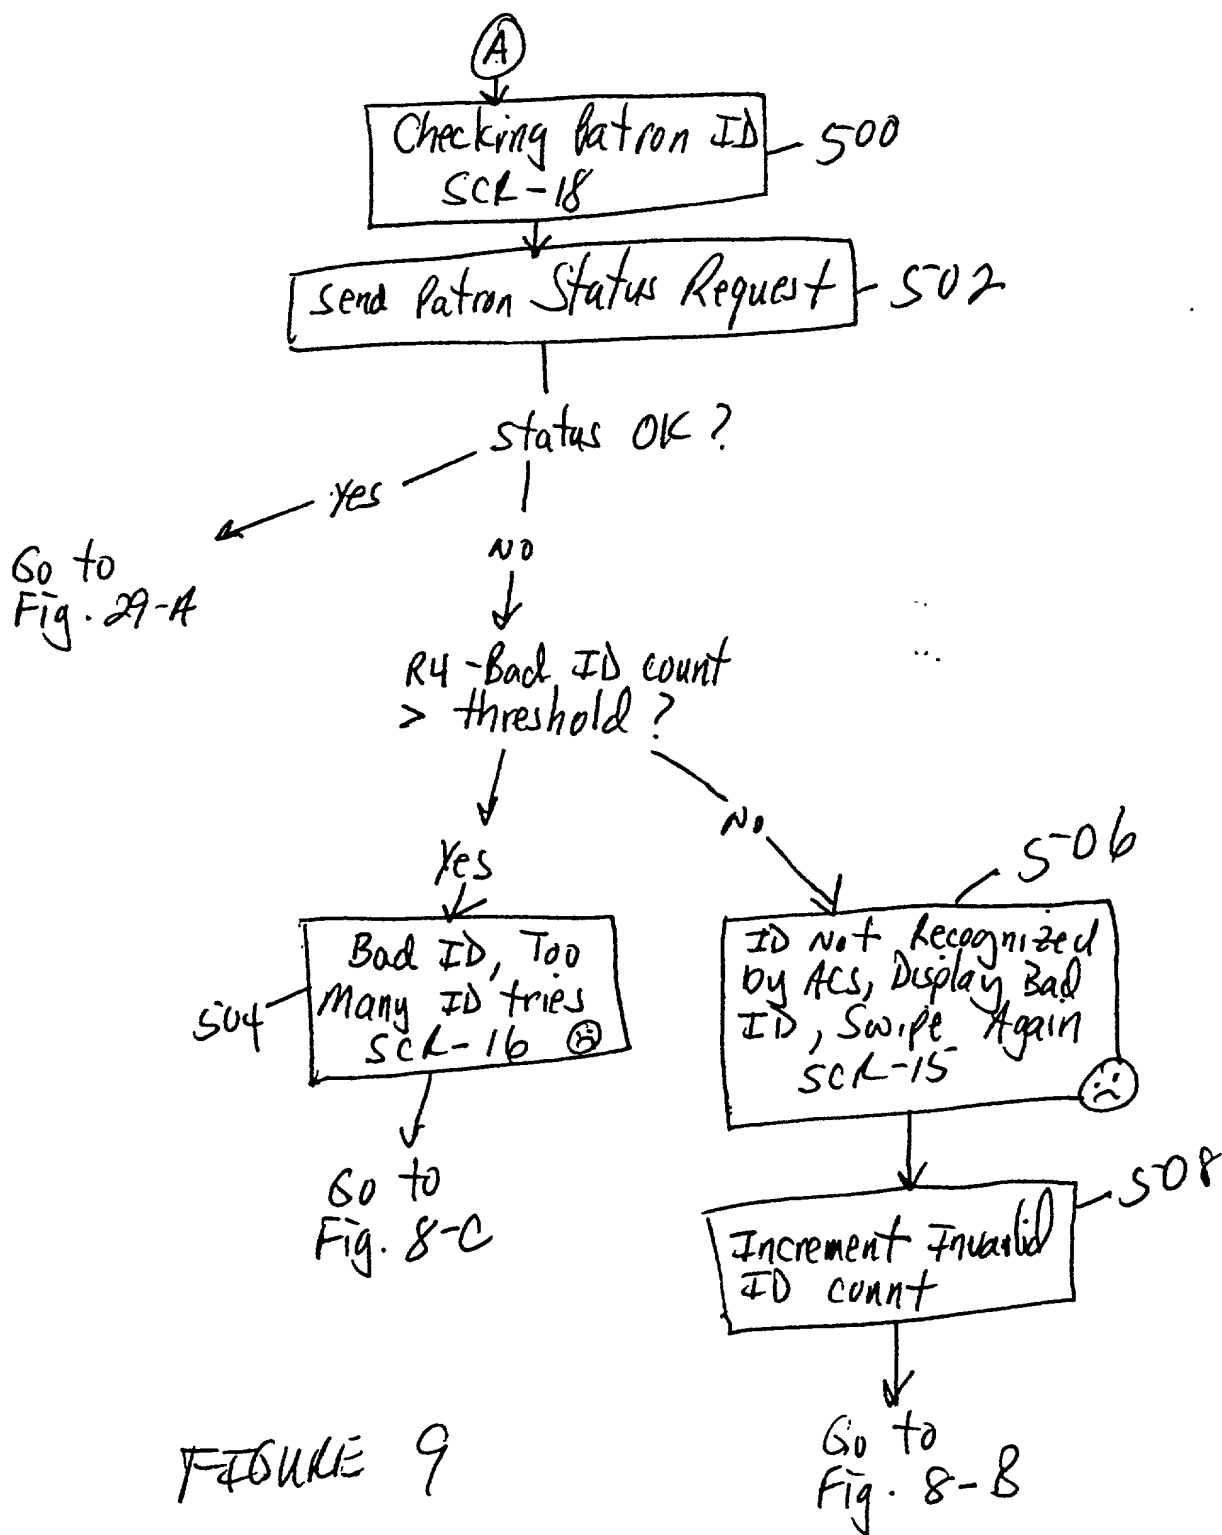 A
Checking Patron ID
500
SCR-18
Send Patron Status Request
502
Status OK?
Yes
No
Go to
Fig. 29-A
R4-Bad ID count
> threshold?
Yes
No
506
Bad ID, Too
Many ID tries
SCR-16
504
ID Not Recognized
by ACS, Display Bad
ID, Swipe Again
SCR-15
Go to
Fig. 8-C
508
Increment Invalid
ID count
Go to
Fig. 8-B
FIGURE 9